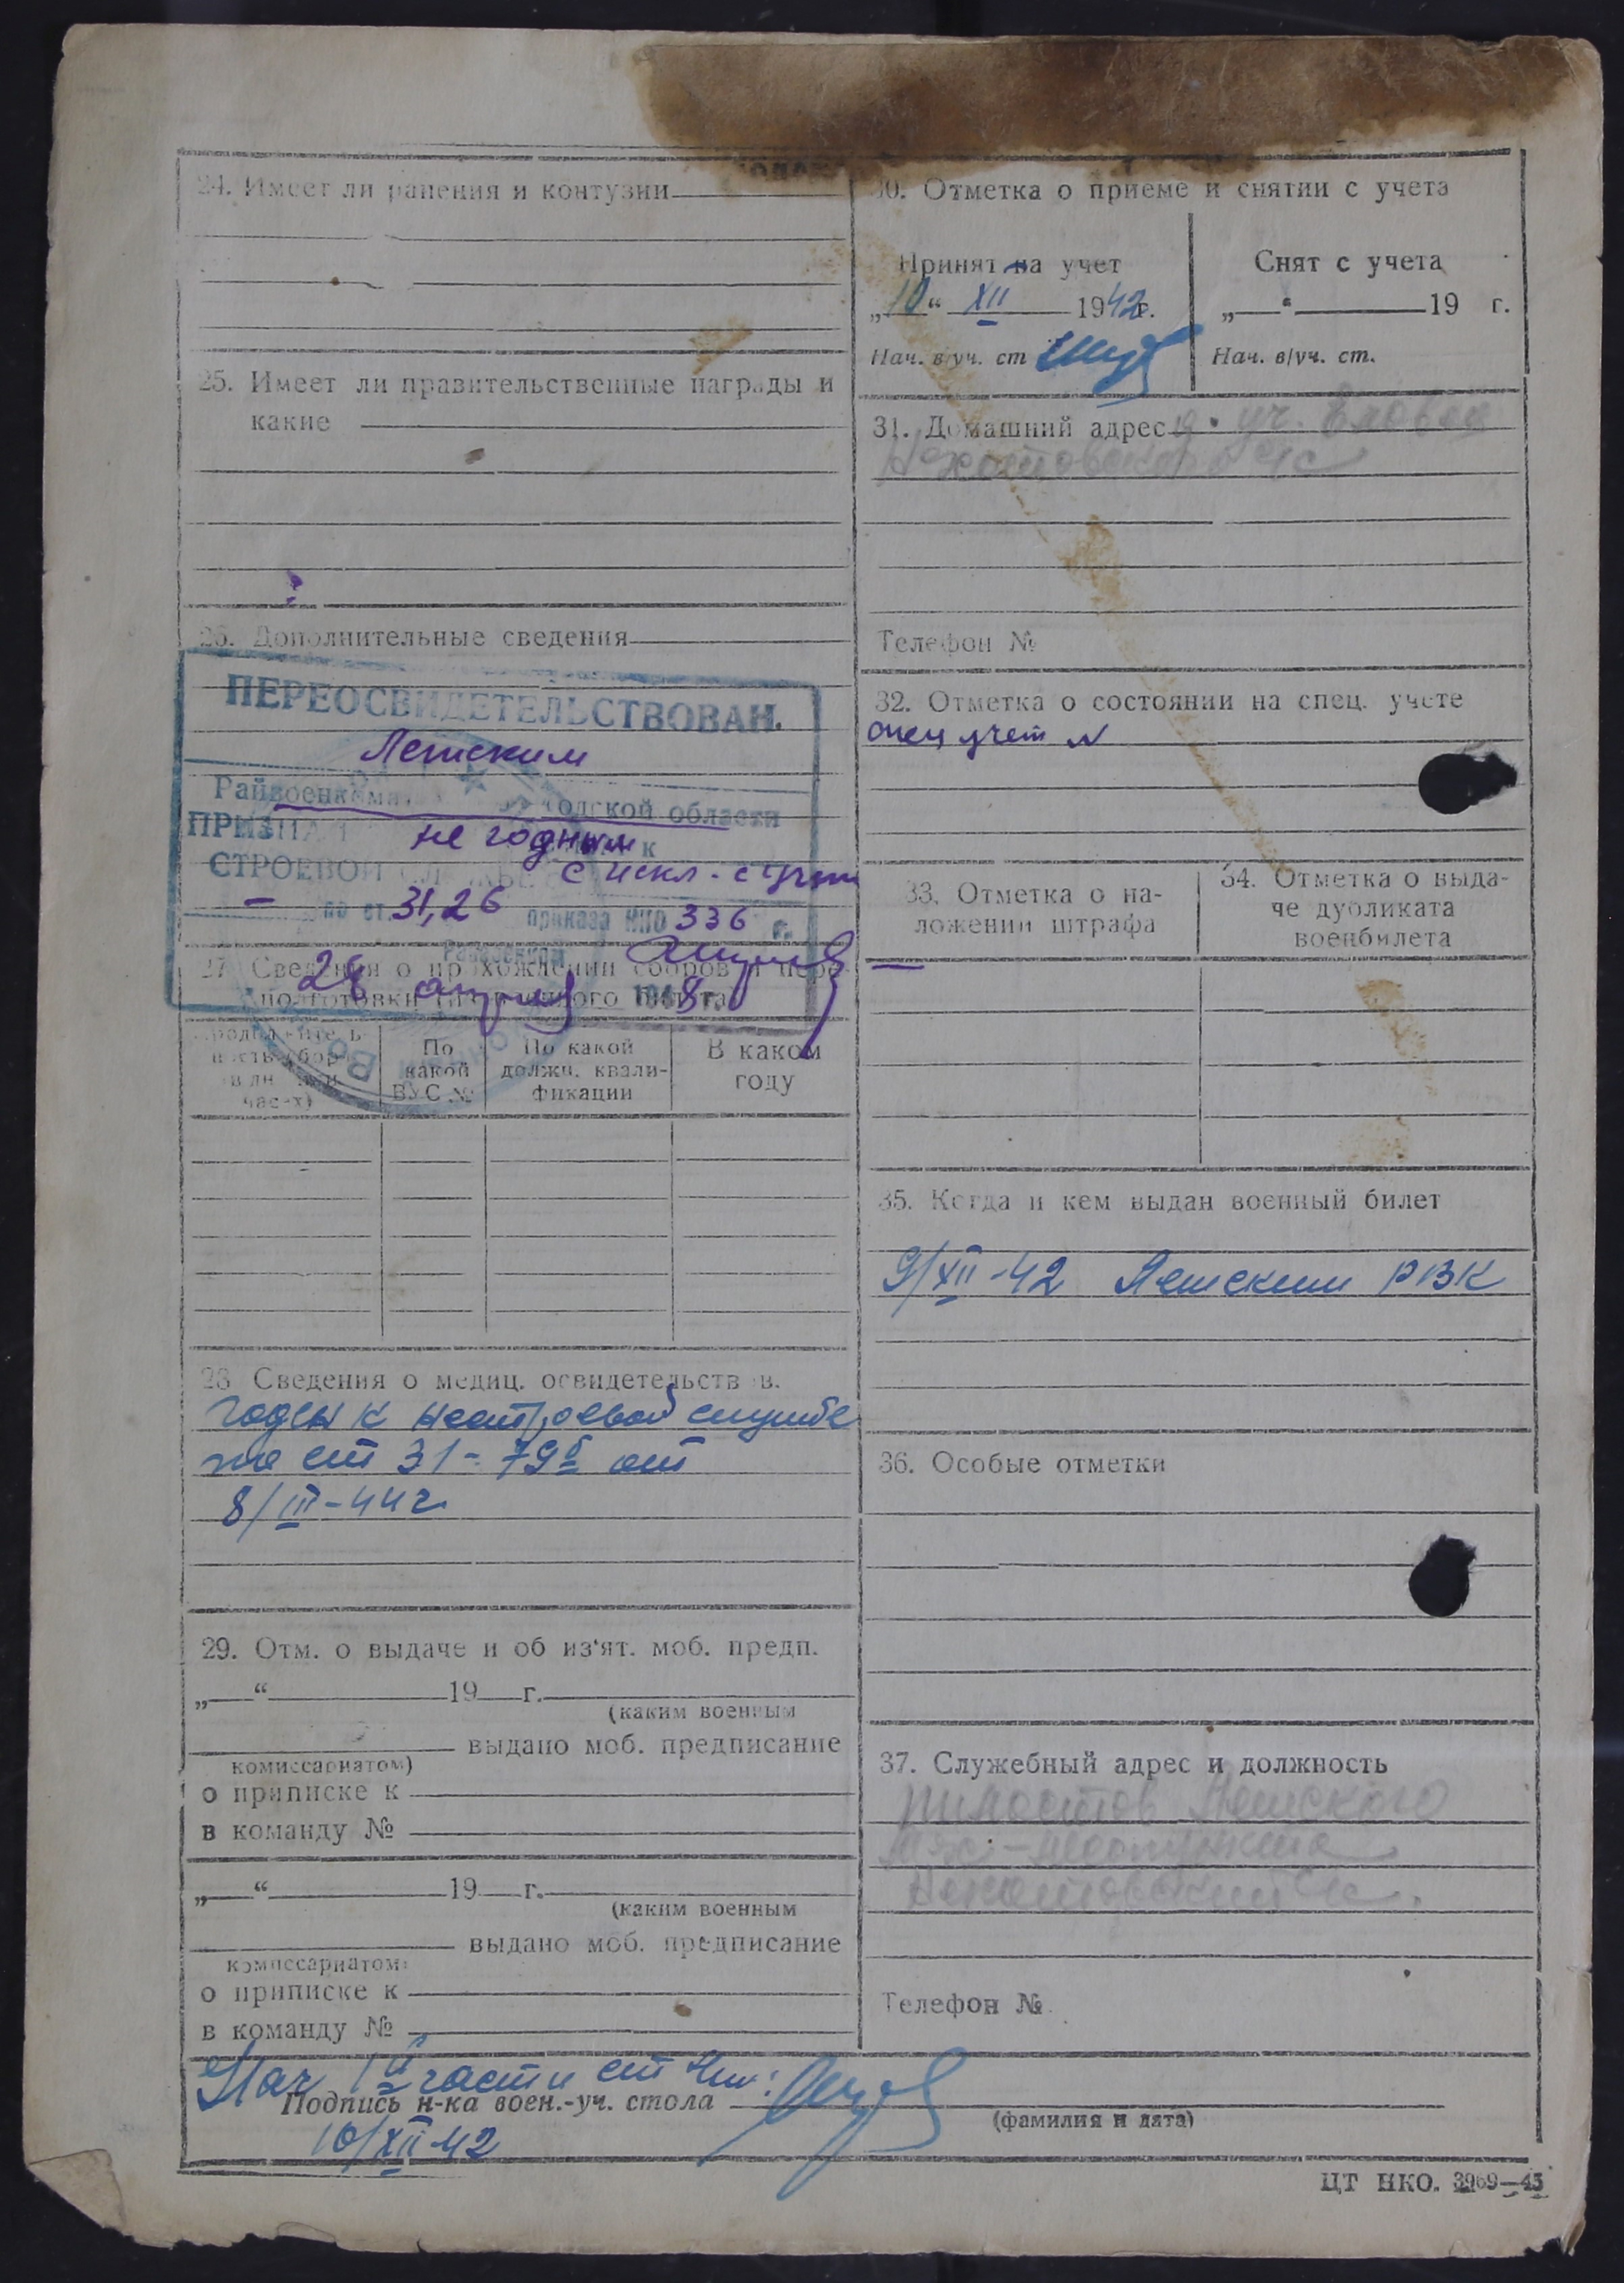 24. Имеет ли ранения и контузии
25. Имеет ли правительственные награды и
какие
26. Дополнительные сведения
ПЕРЕОСВИДЕТЕЛЬСТВОВАН.
Летским
Райвоенкома одской области
ПРИЗНАН не годным к
СТРОЕВОЙ СЛУЖБЕ с искл. с учета
по ст. 31, 26 приказа НКО 336 г.
Райвоенком
27. Сведения о прохождении сборов и пере-
подготовки
28 194 8 г.
По какой ВУС №
По какой должн. квали-фикации
В каком году
час-х)
28 Сведения о медиц. освидетельств в.
Годен к нестроевой службе
по ст 31-79б от
8/III-44 г
29. Отм. о выдаче и об из'ят. моб. предп.
„ “ 19 г.
(каким военным
выдано моб. предписание
комиссариатом)
о приписке к
в команду №
„ “ 19 г.
(каким военным
выдано моб. предписание
комиссариатом)
о приписке к
в команду №
30. Отметка о приеме и снятии с учета
Принят на учет
„10“ XII 1942г.
Нач. в/уч. ст
Снят с учета
„ “ 19 г.
Нач. в/уч. ст.
31. Домашний адрес
с/с
Телефон №
32. Отметка о состоянии на спец. учете
спец учет N
33. Отметка о на-
ложении штрафа
34. Отметка о выда-
че дубликата
военбилета
35. Когда и кем выдан военный билет
9/XII-42 Летским РВК
36. Особые отметки
37. Служебный адрес и должность
Летского
Телефон №
Нач части
Подпись н-ка воен.-уч. стола
(фамилия и дата)
10/XII-42
ЦТ НКО. 3969—43